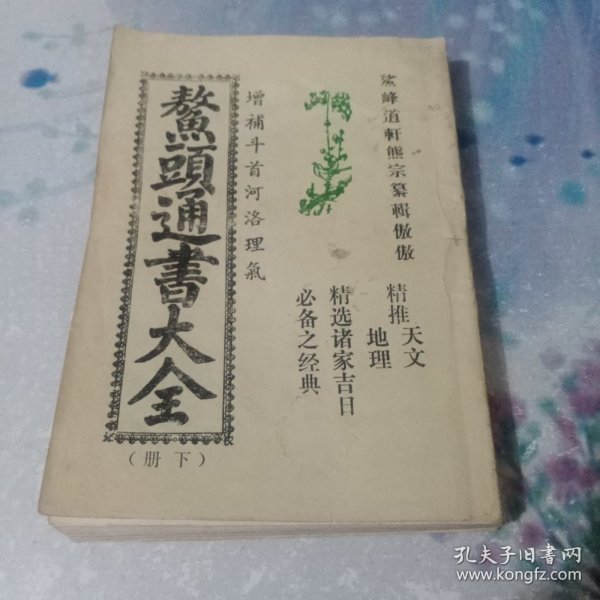 鯊峰道軒熊宗纂輯傲傲
精推天文
地理
精选诸家吉日
必备之经典
增補斗首河洛理氣
鰲頭通書大全
（下册）
孔夫子旧书网
www.kongfz.com